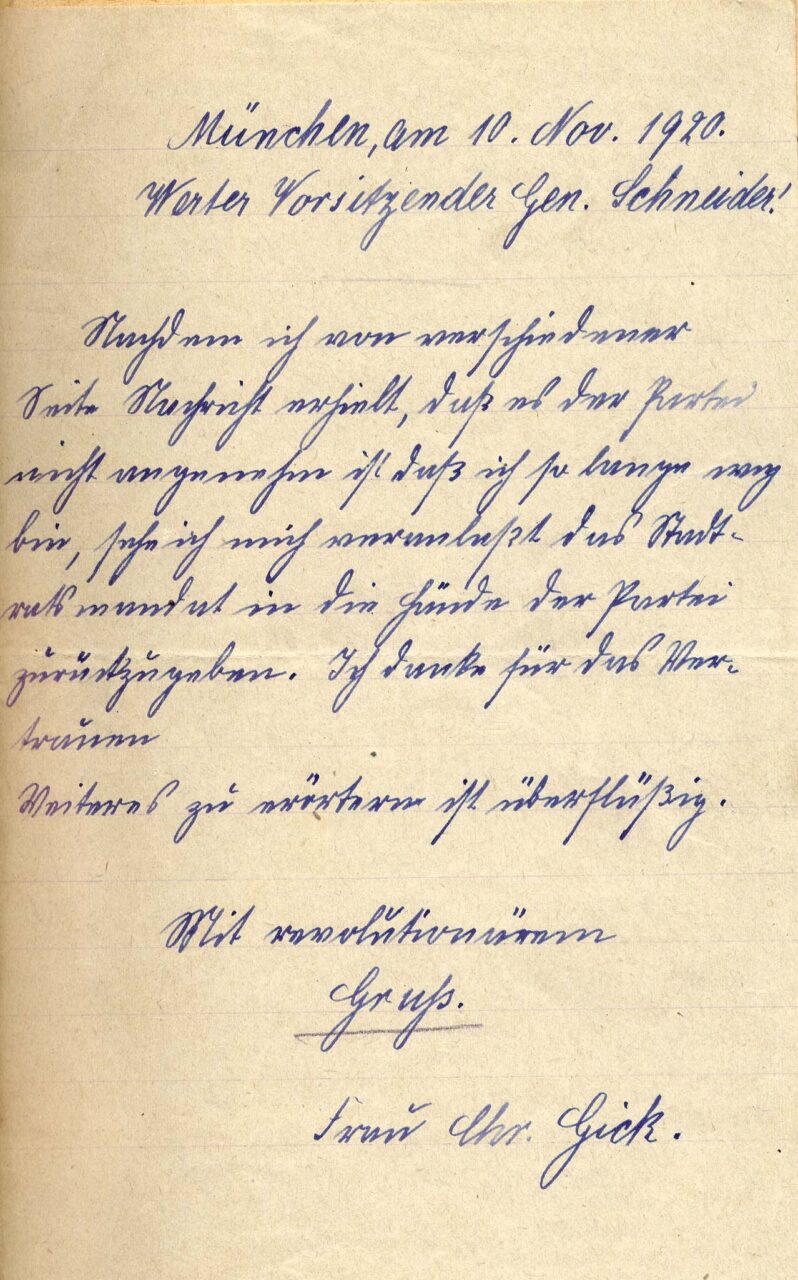 München, am 10. Nov. 1920.
Werter Vorsitzender Gen. Schneider!
Nachdem ich von verschiedener
Seite Nachricht erhielt, daß es der Partei
nicht angenehm ist daß ich so lange weg
bin, sehe ich mich veranlaßt das Stadt-
ratsmandat in die Hände der Partei
zurückzugeben. Ich danke für das Ver-
trauen
Weiteres zu erörtern ist überflüßig.
Mit revolutionärem
Gruß.
Frau Chr. Gick.